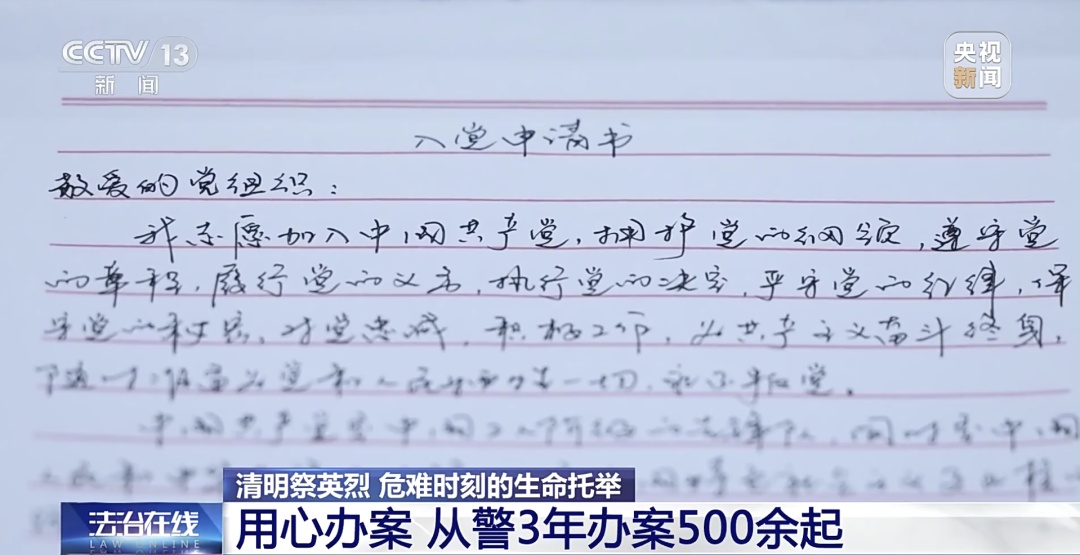 CCTV 13
新闻
央视
新闻
入党申请书
敬爱的党组织：
我志愿加入中国共产党，拥护党的纲领，遵守党
的章程，履行党的义务，执行党的决定，严守党的纪律，保
守党的秘密，对党忠诚，积极工作，为共产主义奋斗终身，
随时准备为党和人民牺牲一切，永不叛党。
中国共产党是中国工人阶级的先锋队，同时是中国
人民和中
清明祭英烈 危难时刻的生命托举
法治在线
LAW ONLINE
用心办案 从警3年办案500余起